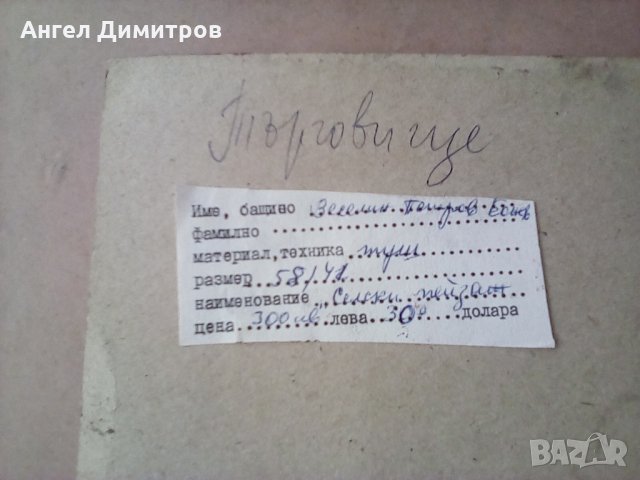 Ангел Димитров
Търговище
Име, бащино Веселин Петров
фамилно
материал, техника туш
размер 58/41
наименование "Селски пейзаж
цена 300 лв. лева 30 долара
BAZAR